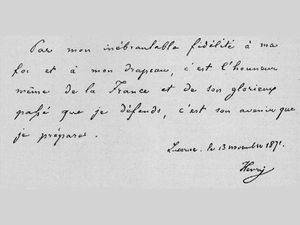 Par mon inébranlable fidélité à ma
foi et à mon drapeau, c'est l'honneur
même de la France et de son glorieux
passé que je défends, c'est son avenir que
je prépare.
Lucerne, le 13 novembre 1871.
Henry